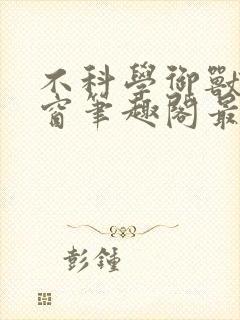 不科學御獸
窗筆趣閣最
彭鍾